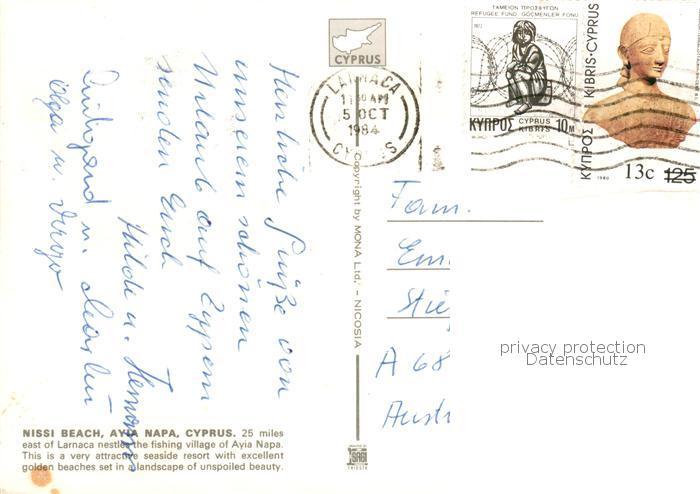 CYPRUS
ΤΑΜΕΙΟΝ ΠΡΟΣΦΥΓΩΝ
REFUGEE FUND. GÖÇMENLER FONU
1977
ΚΥΠΡΟΣ CYPRUS KIBRIS 10M
ΚΥΠΡΟΣ KIBRIS·CYPRUS
1980
13c 125
LARNACA
5 OCT
1984
CYPRUS
Herzliche Grüße von
unserem schönen
Urlaub auf Zypern
senden Euch
Hilde u. Hermann
u. Martin
Olga u.
Copyright by MONA Ltd. - NICOSIA
Fam.
A 68
privacy protection
Datenschutz
NISSI BEACH, AYIA NAPA, CYPRUS. 25 miles
east of Larnaca nestles the fishing village of Ayia Napa.
This is a very attractive seaside resort with excellent
golden beaches set in a landscape of unspoiled beauty.